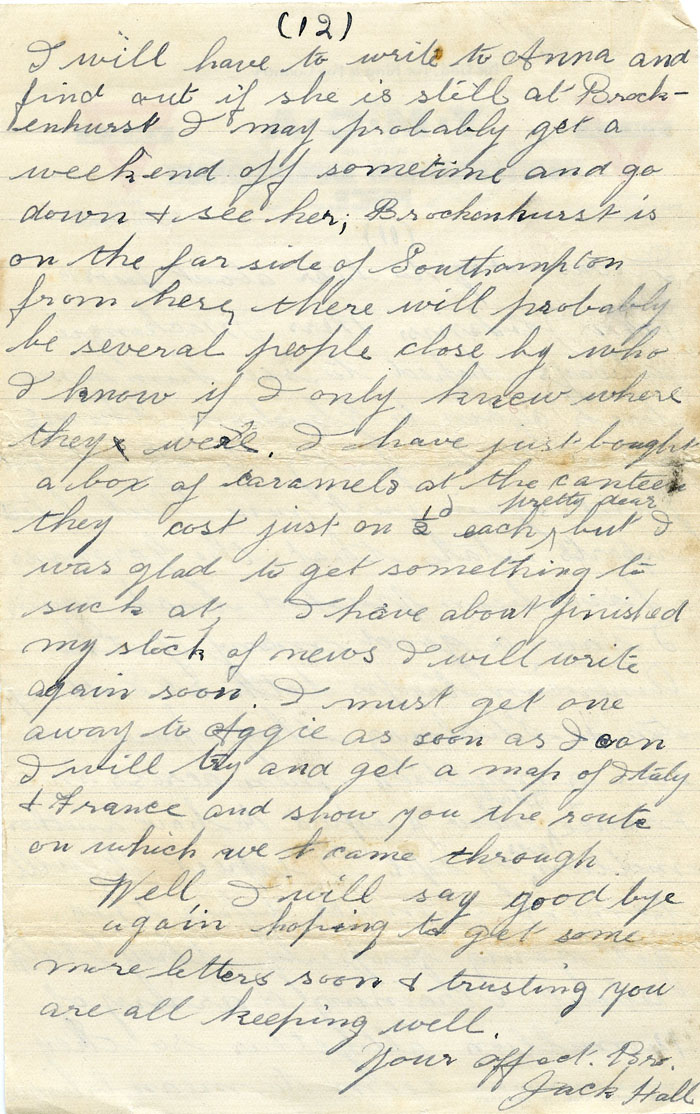 (12)
I will have to write to Anna and
find out if she is still at Brock-
enhurst I may probably get a
weekend off sometime and go
down & see her; Brockenhurst is
on the far side of Southampton
from here, there will probably
be several people close by who
I know if I only knew where
they were. I have just bought
a box of caramels at the canteen
pretty dear
they cost just on ½d each, but I
was glad to get something to
suck at, I have about finished
my stock of news I will write
again soon. I must get one
away to Aggie as soon as I can
I will try and get a map of Italy
& France and show you the route
on which we came through
Well, I will say good bye
again hoping to get some
more letters soon & trusting you
are all keeping well.
Your affect. Bro.
Jack Hall